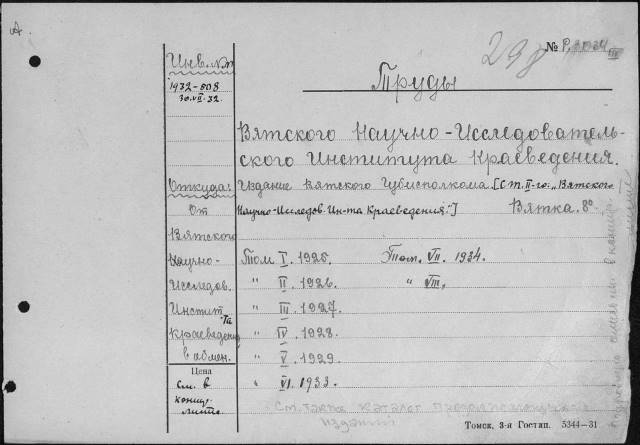 А.
298
№ Р. 3034
Инв. №
1932-808
30.VII.32.
Труды
Вятского Научно-Исследователь-
ского Института Краеведения.
Откуда:
Издание Вятского Губисполкома [С т. II-го: „Вятского
От
Научно-Исследов. Ин-та Краеведения"]
Вятка. 8°
Вятского
Научно-
Исследов.
Инстит-та
Краеведения
в обмен.
Том I. 1925.
Том. VII. 1934.
" II. 1926.
" VIII.
" III. 1927.
" IV. 1928.
" V. 1929.
" VI. 1933.
Цена
См. в
концир.
листе.
См. также каталог продолжающихся
изданий
Томск, 3-я Гостип. 5344—31